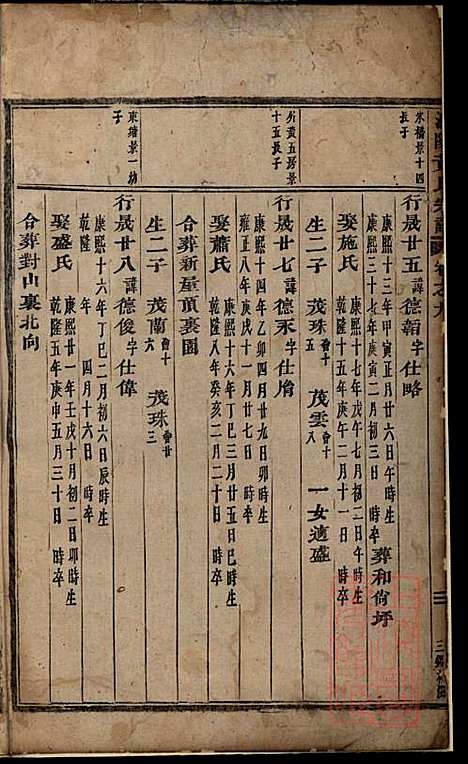 卷之九
米橋景十四
長子
行晟廿五諱德韜字仕略
康熙十三年甲寅正月廿六日午時生
康熙三十七年庚寅二月初三日 時卒
葬和尚坪
娶施氏
康熙十七年戊午七月初二日午時生
乾隆十五年庚午二月十一日 時卒
生二子 茂珠會十五 茂雲會十八 一女適盛
所黃五房景
十五長子
行晟廿七諱德永字仕脩
康熙十四年乙卯四月廿九日卯時生
雍正八年庚戌十一月廿七日 時卒
娶蕭氏
康熙十六年丁巳三月廿五日巳時生
乾隆八年癸亥二月二十日 時卒
合葬新屋頂裏園
生二子 茂蘭會十六 茂珠會廿三
東塘景一幼
子
行晟廿八諱德俊字仕偉
康熙十六年丁巳二月初六日辰時生
乾隆 年 四月十六日 時卒
娶盛氏
康熙廿一年壬戌十月初二日卯時生
乾隆五年庚申五月三十日 時卒
合葬對山裏北向